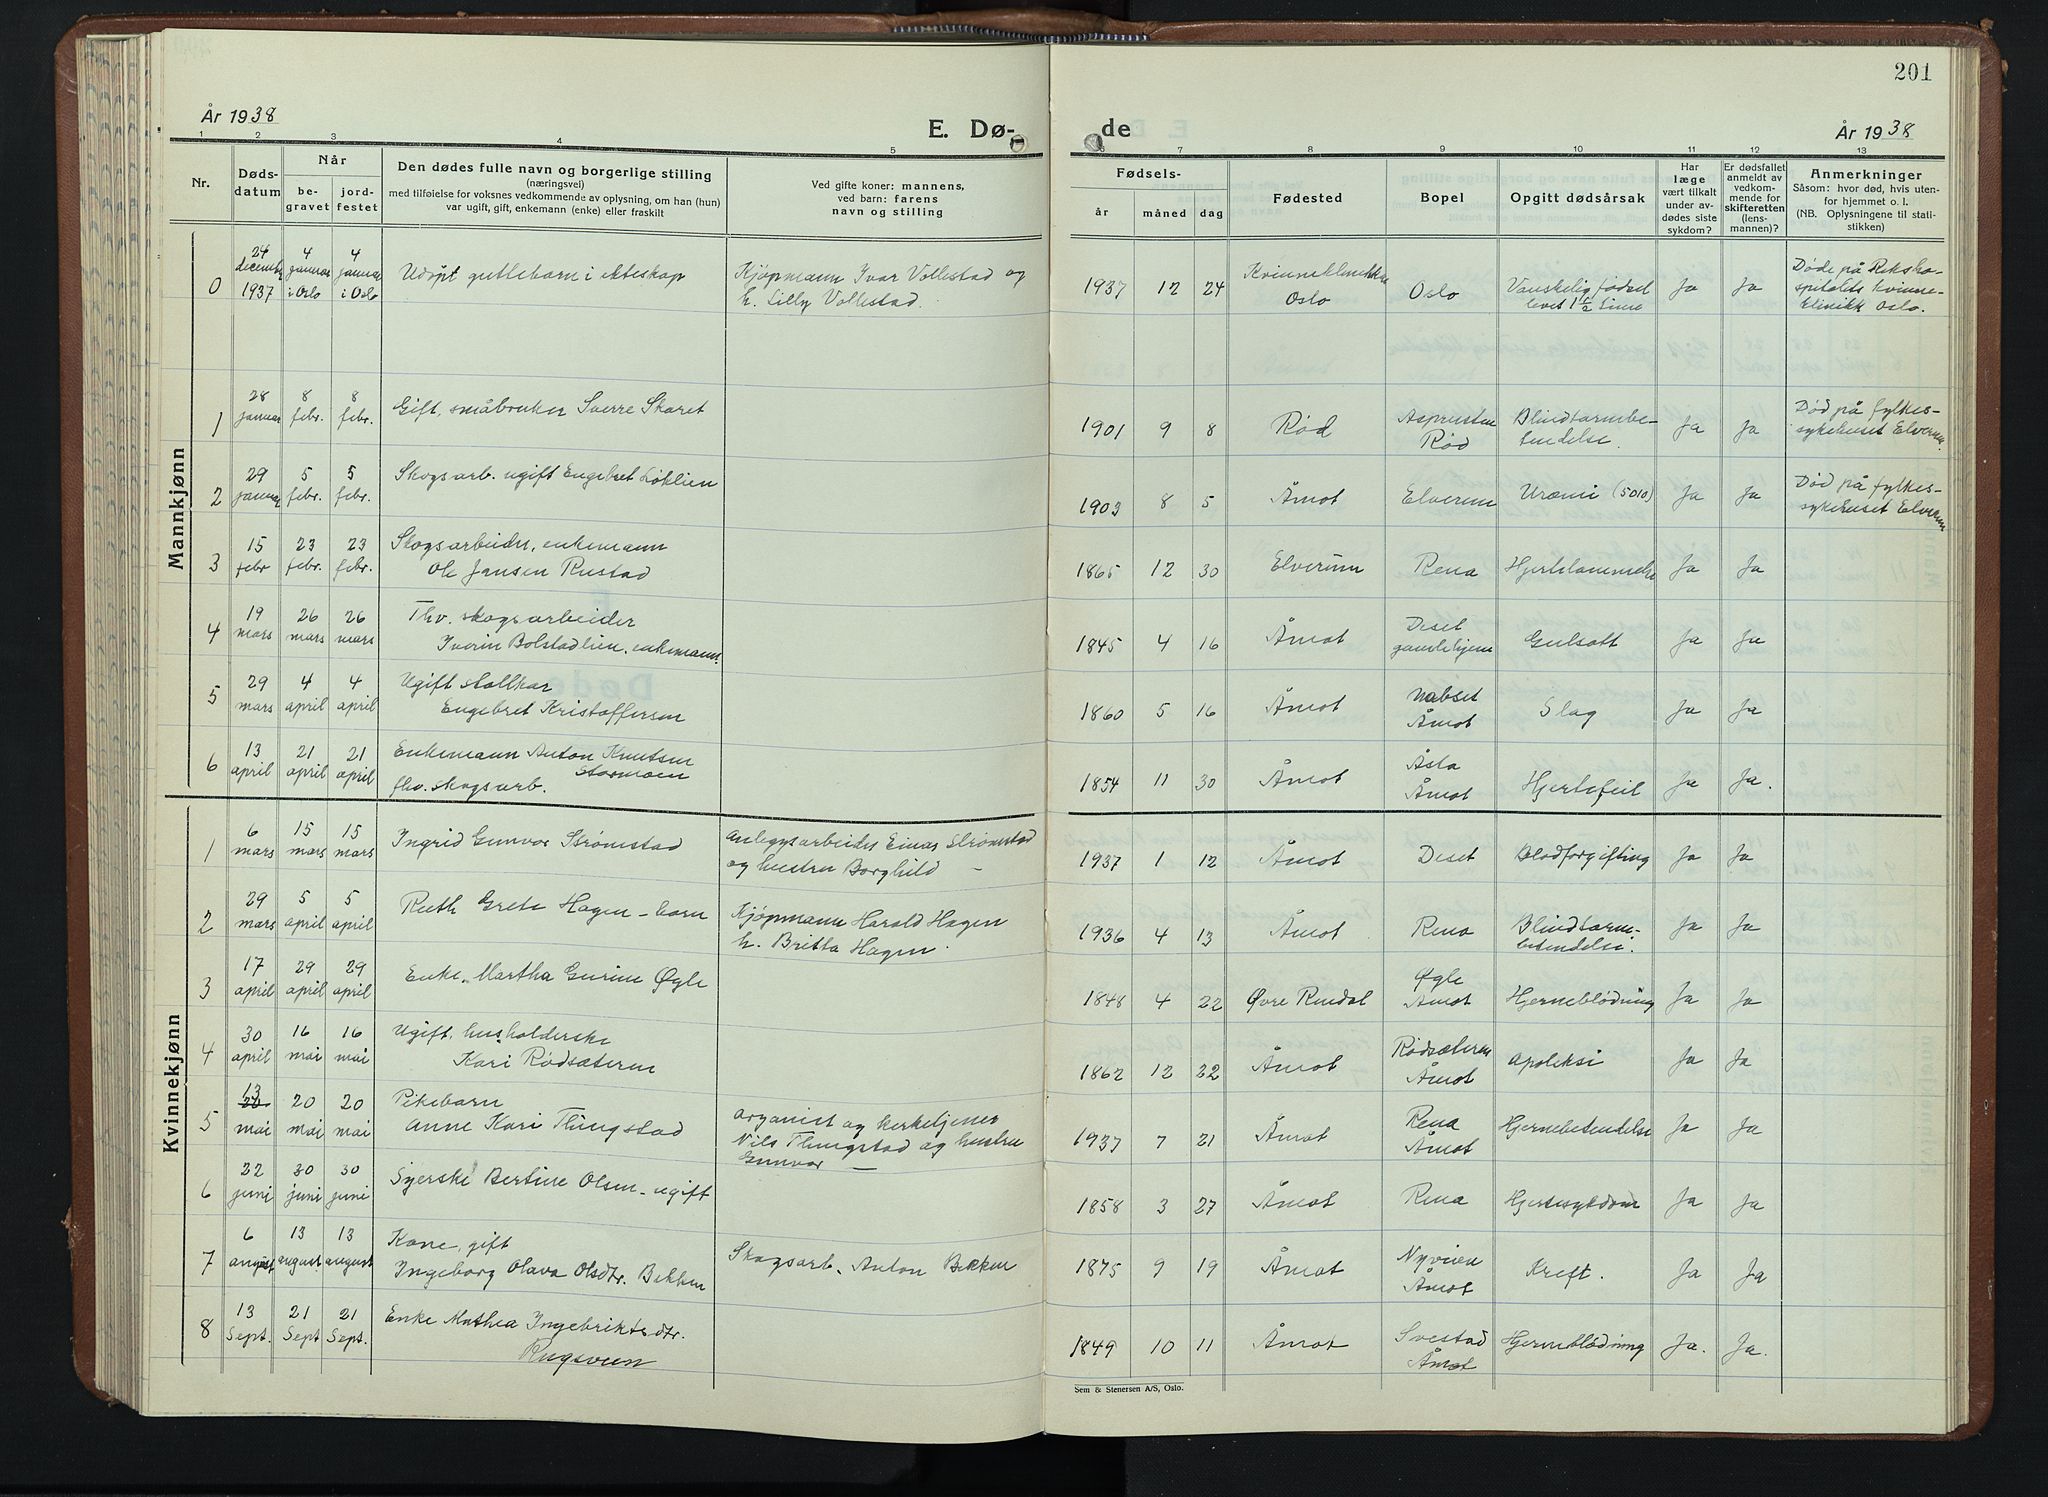 201
År 1938
E. Dø-
de
År 1938
1 2 3 4 5
6 7 8 9 10 11 12 13
Nr.
Døds-
datum
Når
be-
gravet
jord-
festet
Den dødes fulle navn og borgerlige stilling
(næringsvei)
med tilføielse for voksnes vedkommende av oplysning, om han (hun)
var ugift, gift, enkemann (enke) eller fraskilt
Ved gifte koner: mannens,
ved barn: farens
navn og stilling
Fødsels-
år
måned
dag
Fødested
Bopel
Opgitt dødsårsak
Har
læge
vært tilkalt
under av-
dødes siste
sykdom?
Er dødsfallet
anmeldt av
vedkom-
mende for
skifteretten
(lens-
mannen)?
Anmerkninger
Såsom: hvor død, hvis uten-
for hjemmet o. l.
(NB. Oplysningene til stati-
stikken)
Mannkjønn
0
24 decembr 1937
4 januar i Oslo
4 januar i Oslo
Udøpt guttebarn i ekteskap
Kjøpmann Ivar Vollestad og
h. Lilly Vollestad.
1937 12 24
Kvinneklinikken
Oslo
Oslo
Vanskelig fødsel
levet 1 1/2 time
Ja
Ja
Døde på Riksho-
spitalets kvinne-
klinikk Oslo.
1
28 januar
8 febr.
8 febr.
Gift, småbruker Sverre Skaret
1901 9 8
Rød
Asprusten
Rød
Blindtarmbe-
tendelse.
Ja
Ja
Død på fylkes-
sykehuset Elverum.
2
29 januar
5 febr.
5 febr.
Skogsarb. ugift Engebret Løklien
1903 8 5
Åmot
Elverum
Uræmi (5010)
Ja
Ja
Død på fylkes-
sykehuset Elverum
3
15 febr
23 febr.
23 febr.
Skogsarbeider, enkemann
Ole Jansen Rustad
1865 12 30
Elverum
Rena
Hjertelammelse
Ja
Ja
4
19 mars
26 mars
26 mars
Fhv. skogsarbeider
Iverin Bolstadlien, enkemann.
1845 4 16
Åmot
Deset
gamlehjem
Gulsott
Ja
Ja
5
29 mars
4 april
4 april
Ugift stallkar
Engebret Kristoffersen
1860 5 16
Åmot
Nabset
Åmot
Slag
Ja
Ja
6
13 april
21 april
21 april
Enkemann Anton Knutsen
Stormoen
fhv. skogsarb.
1854 11 30
Åmot
Åsta
Åmot
Hjertefeil
Ja
Ja.
Kvinnekjønn
1
6 mars
15 mars
15 mars
Ingrid Gunvor Strømstad
Anleggsarbeider Einar Strømstad
og hustru Borghild —
1937 1 12
Åmot
Deset
Blodforgifting
Ja
Ja
2
29 mars
5 april
5 april
Ruth Grete Hagen - barn
Kjøpmann Harald Hagen
h. Britta Hagen.
1936 4 13
Åmot
Rena
Blindtarm-
betendelse.
Ja
Ja
3
17 april
29 april
29 april
Enke. Martha Gurine Øgle
1848 4 22
Øvre Rendal
Øgle
Åmot
Hjerneblødning
Ja
Ja
4
30 april
16 mai
16 mai
Ugift, husholderske
Kari Rødsæteren
1862 12 22
Åmot
Rødsæteren
Åmot
Apoleksi
Ja
Ja
5
13 mai
20 mai
20 mai
Pikebarn
Anne Kari Thingstad
Organist og kirketjener
Nils Thingstad og hustru
Gunvor —
1937 7 21
Åmot
Rena
Åmot
Hjernebetendelse
Ja
Ja
6
22 juni
30 juni
30 juni
Syerske Bertine Olsen - ugift
1858 3 27
Åmot
Rena
Hjertesykdom
Ja
Ja
7
6 august
13 august
13 august
Kone, gift
Ingeborg Olava Olsdtr. Bekken
Skogsarb. Anton Bekken
1875 9 19
Åmot
Nyveien
Åmot
Kreft.
Ja
Ja
8
13 Sept.
21 Sept
21 Sept.
Enke Mathea Ingebriktsdtr.
Rugsveen
1849 10 11
Åmot
Svestad
Åmot
Hjerneblødning
Ja.
Ja.
Sem & Stenersen A/S, Oslo.